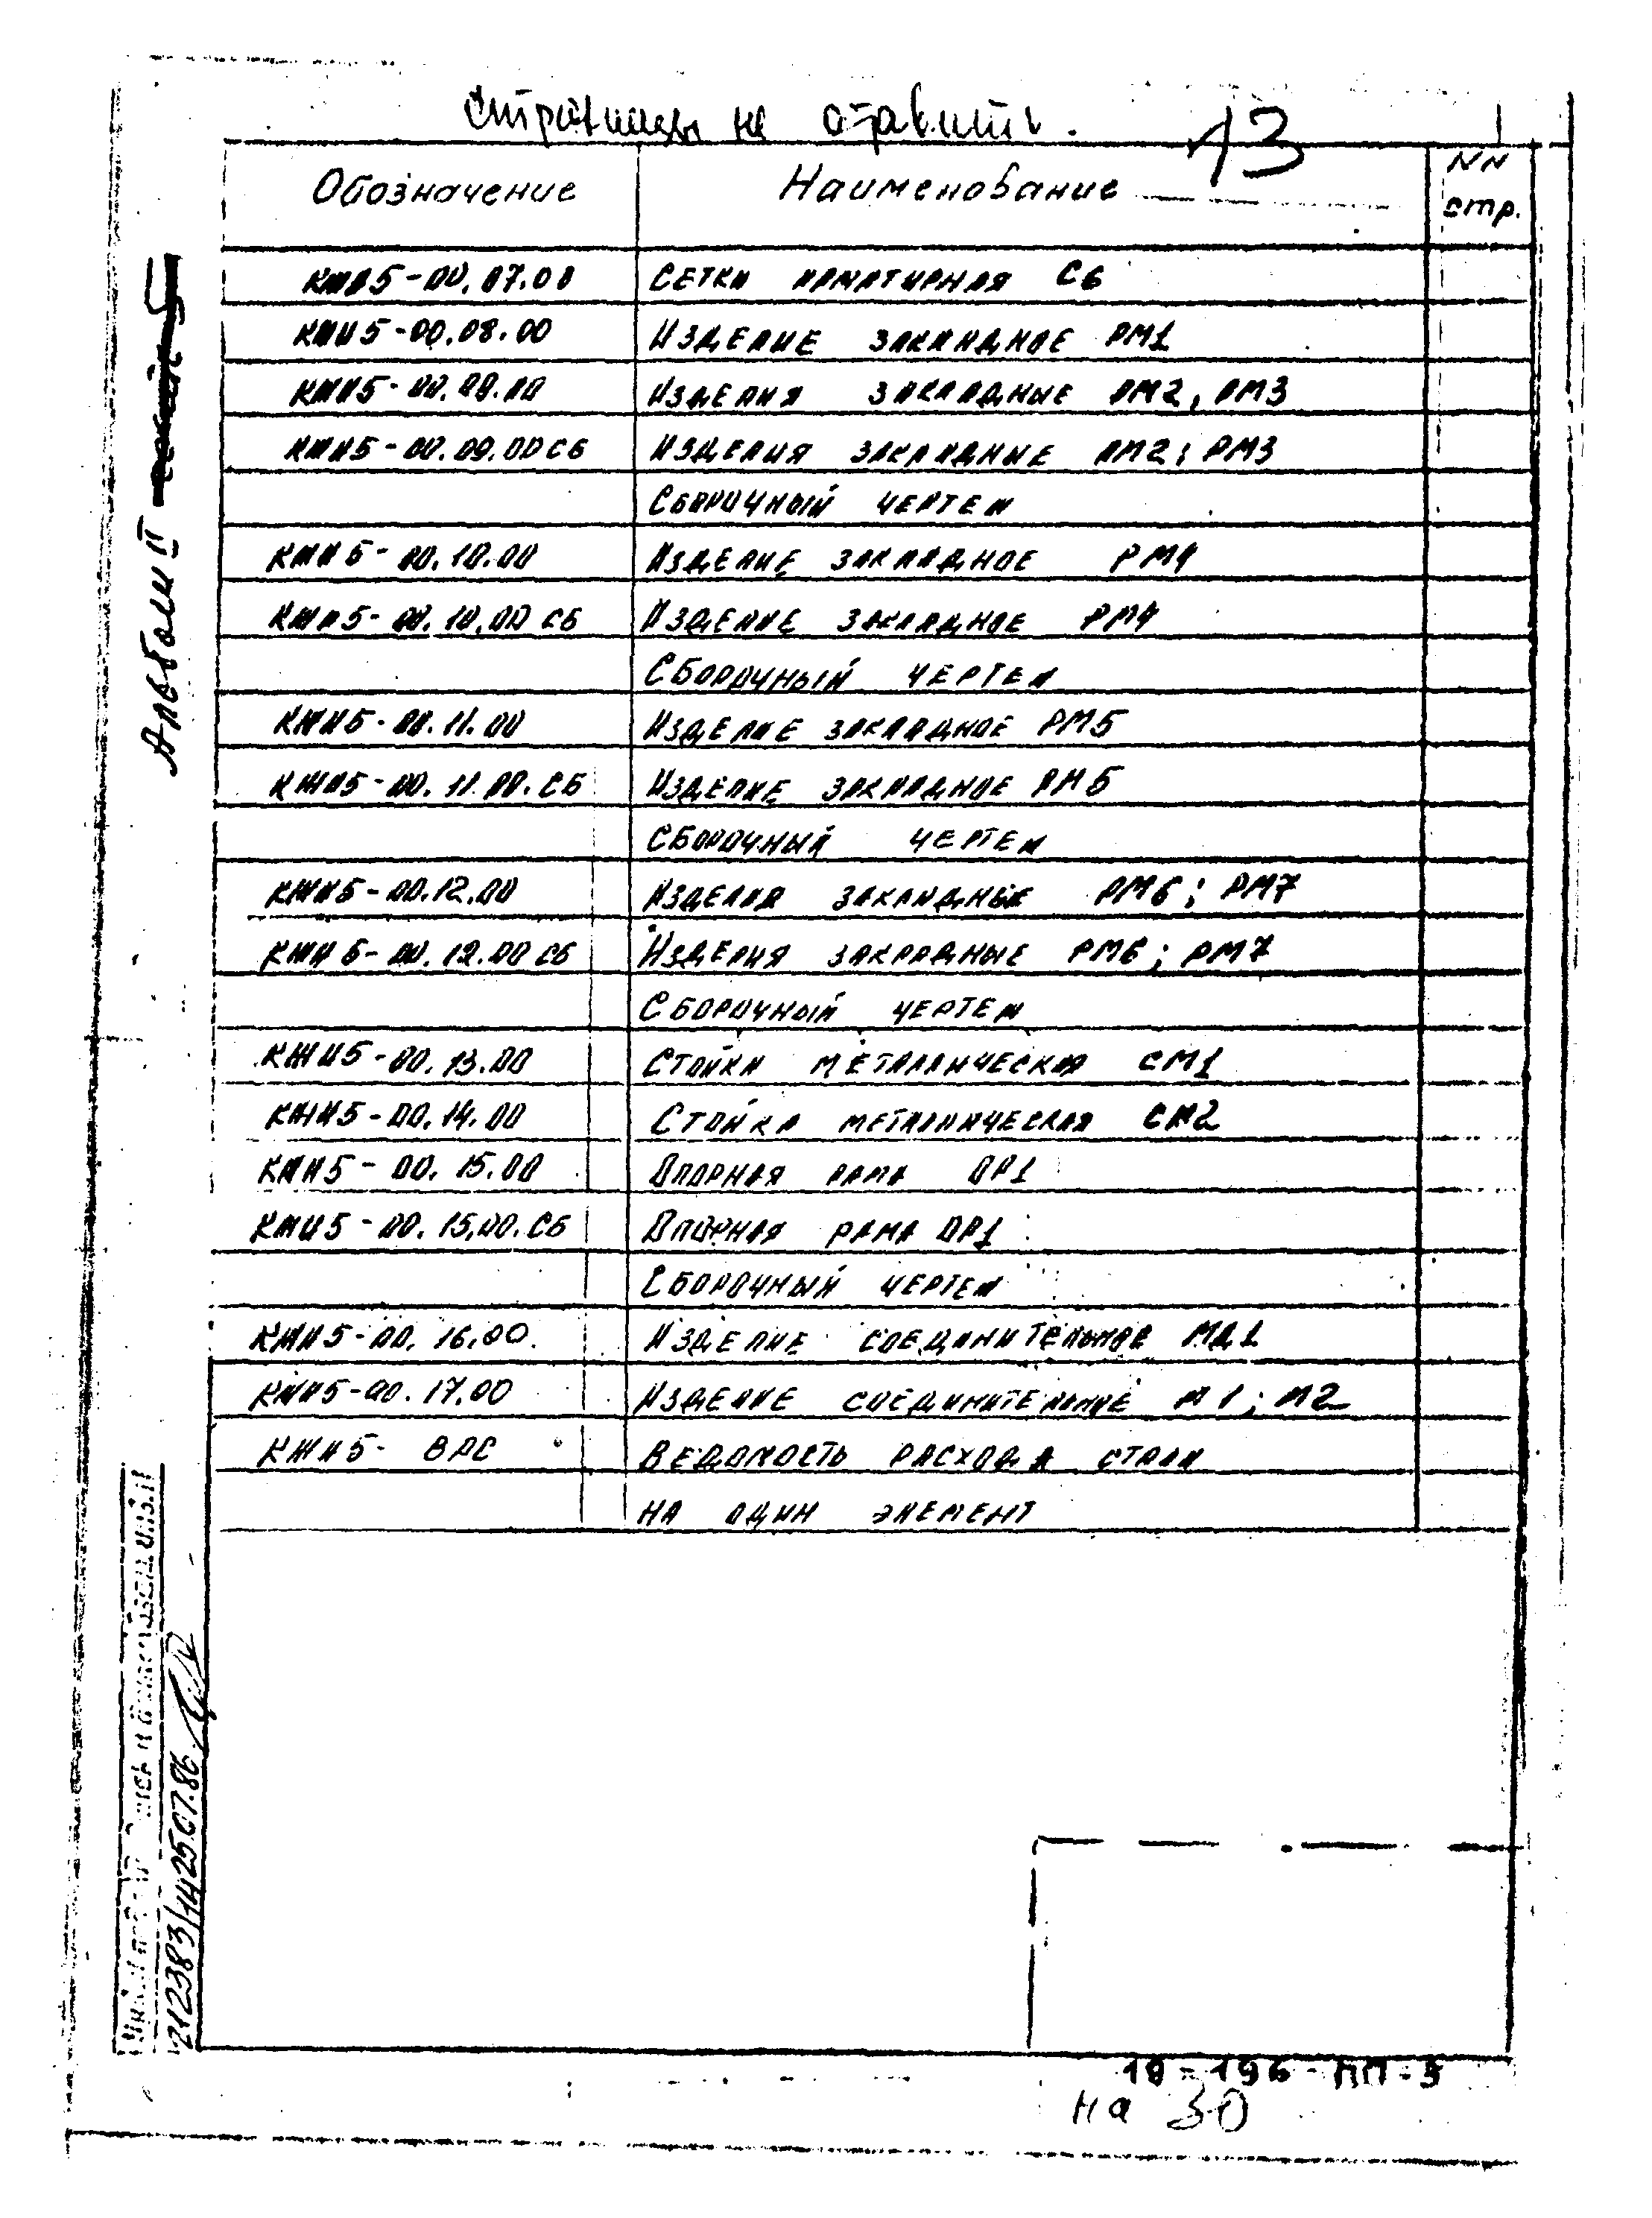 Страницы не ставить. 13
Обозначение Наименование NN стр.
КЖИ5-00.07.00 Сетка арматурная С6
КЖИ5-00.08.00 Изделие закладное РМ1
КЖИ5-00.09.00 Изделия закладные РМ2, РМ3
КЖИ5-00.09.00 СБ Изделия закладные РМ2; РМ3
Сборочный чертеж
КЖИ5-00.10.00 Изделие закладное РМ4
КЖИ5-00.10.00 СБ Изделие закладное РМ4
Сборочный чертеж
КЖИ5-00.11.00 Изделие закладное РМ5
КЖИ5-00.11.00.СБ Изделие закладное РМ5
Сборочный чертеж
КЖИ5-00.12.00 Изделия закладные РМ6; РМ7
КЖИ5-00.12.00 СБ Изделия закладные РМ6; РМ7
Сборочный чертеж
КЖИ5-00.13.00 Стойка металлическая СМ1
КЖИ5-00.14.00 Стойка металлическая СМ2
КЖИ5-00.15.00 Опорная рама ОР1
КЖИ5-00.15.00.СБ Опорная рама ОР1
Сборочный чертеж
КЖИ5-00.16.00. Изделие соединительное МД1
КЖИ5-00.17.00 Изделие соединительное М1; М2
КЖИ5- ВРС Ведомость расхода стали
на один элемент
Альбом II
212383 14 25.07.86
19-196-КП-5
на 30